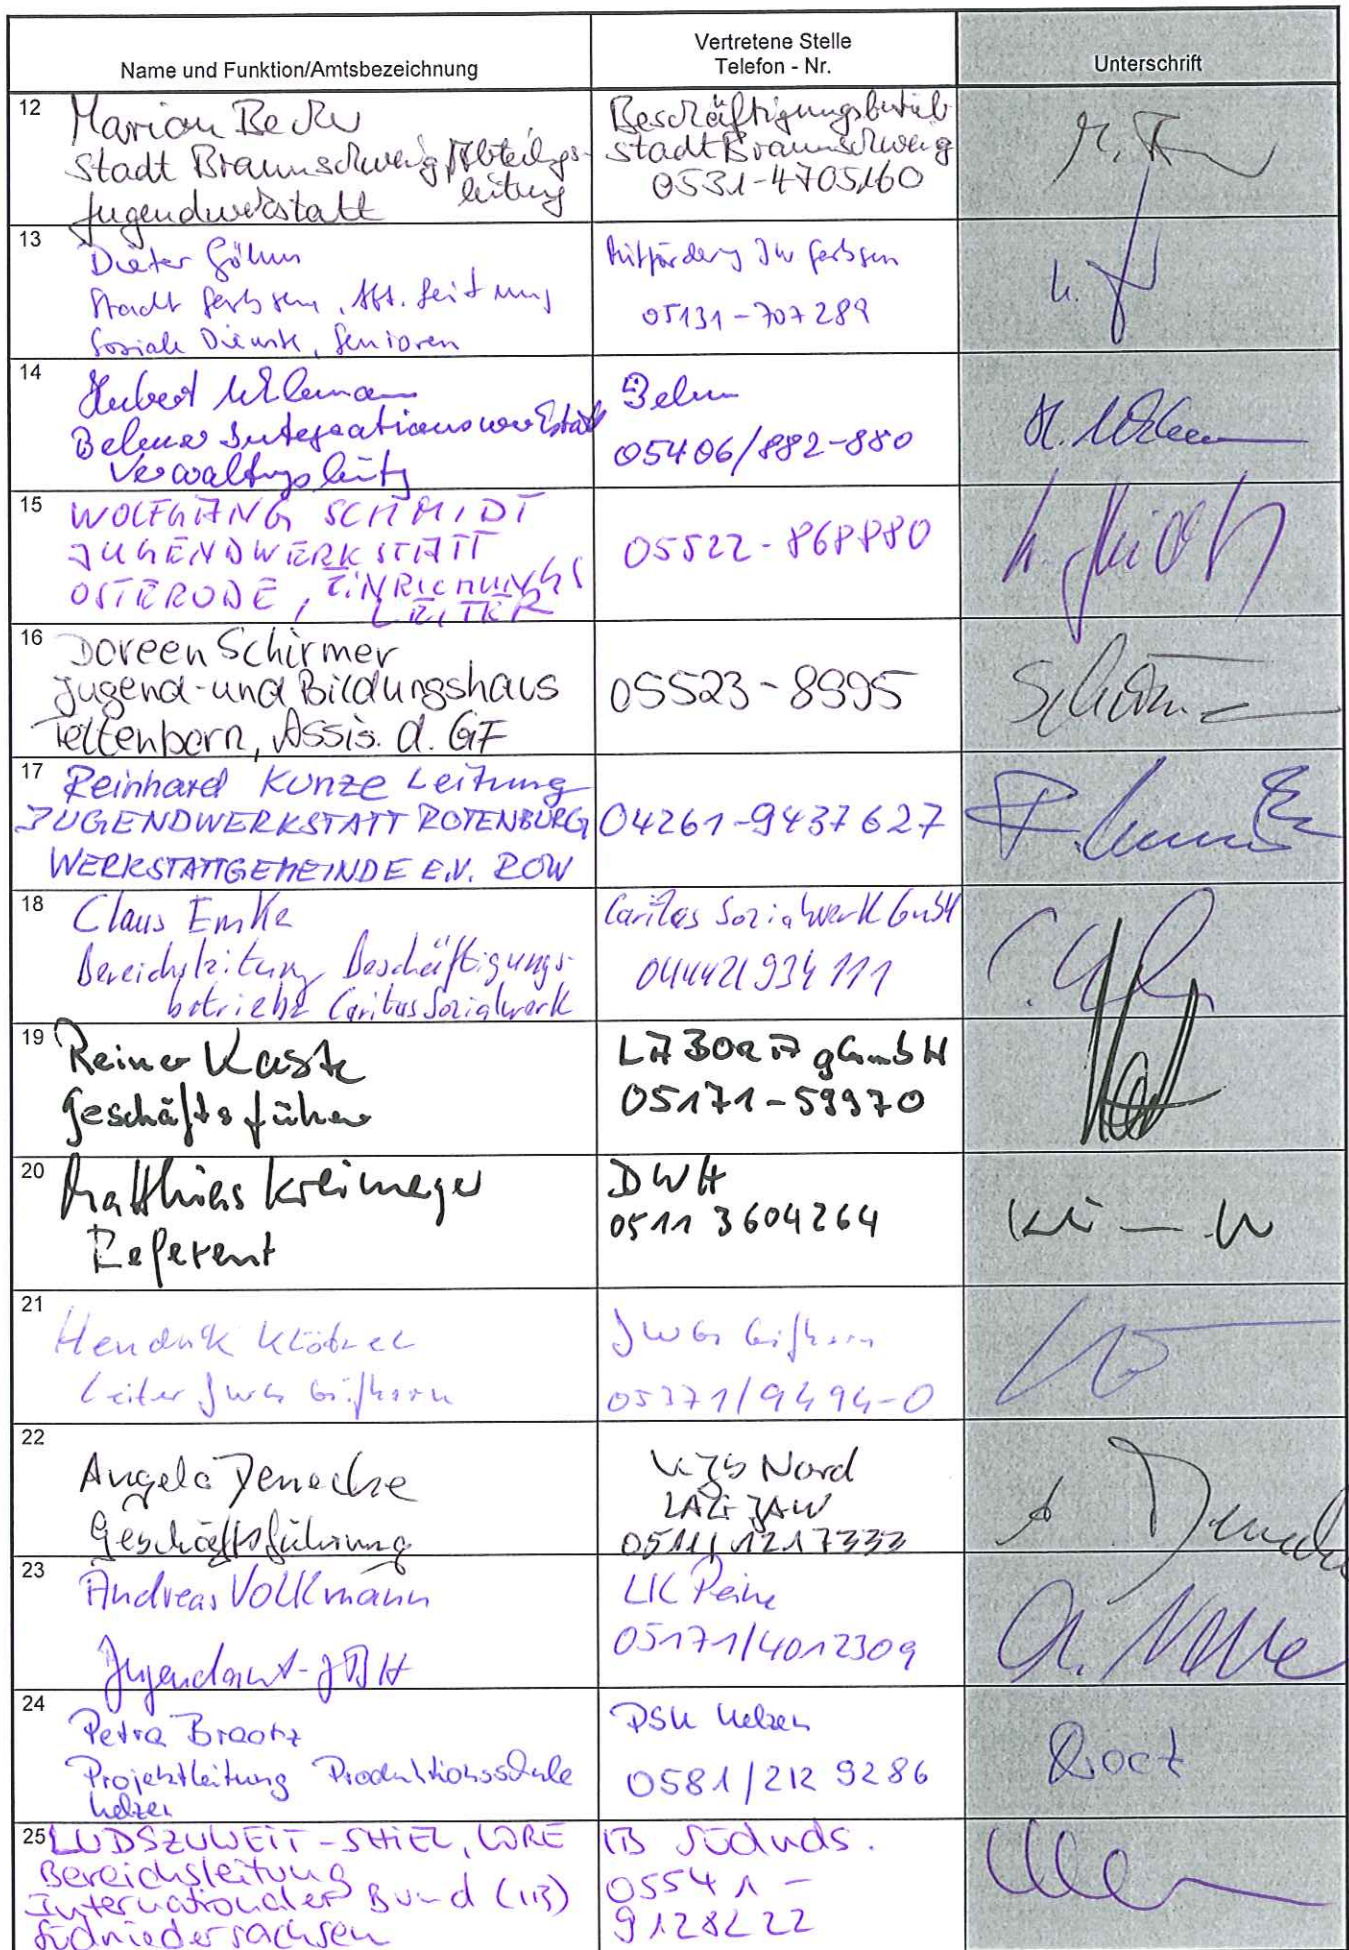 Name und Funktion/Amtsbezeichnung
Vertretene Stelle
Telefon - Nr.
Unterschrift
12
Marion Becker
Stadt Braunschweig, Abteilungs-
leitung
Jugendwerkstatt
Beschäftigungsbetrieb
Stadt Braunschweig
0531-4705160
13
Dieter Göhm
Stadt Garbsen, Abt. Leitung
Soziale Dienste, Senioren
JW Garbsen
05131-707289
14
Hubert
Belmer Integrationswerkstatt
Verwaltungsleitg
Belm
05406/882-880
H.
15
WOLFGANG SCHMIDT
JUGENDWERKSTATT
OSTERODE, EINRICHTUNGS
LEITER
05522-868880
16
Doreen Schirmer
Jugend- und Bildungshaus
Tettenborn, Assis. d. GF
05523-8995
17
Reinhard Kunze Leitung
JUGENDWERKSTATT ROTENBURG
WERKSTATTGEMEINDE E.V. ROW
04261-9437627
18
Claus Emke
Bereichsleitung Beschäftigungs-
betriebe Caritas Sozialwerk
Caritas Sozialwerk GmbH
04442/934 111
19
Reiner Kaste
Geschäftsführer
LABORA gGmbH
05171-59970
20
Matthias Kreimeyer
Referent
DWH
0511 3604264
21
Hendrik Klötzel
Leiter Gifhorn
Gifhorn
05371/9494-0
22
Angela Denecke
Geschäftsführung
Nord
LAG JAW
0511/1217333
23
Andreas Volkmann
Jugendamt - JBH
LK Peine
05171/4012309
24
Petra Braatz
Projektleitung Produktionsschule
Uelzen
PSU Uelzen
0581/212 9286
25
LUDSZUWEIT-SHIEL, LORE
Bereichsleitung
Internationaler Bund (IB)
Südniedersachsen
IB Südnds.
05541-
9128222